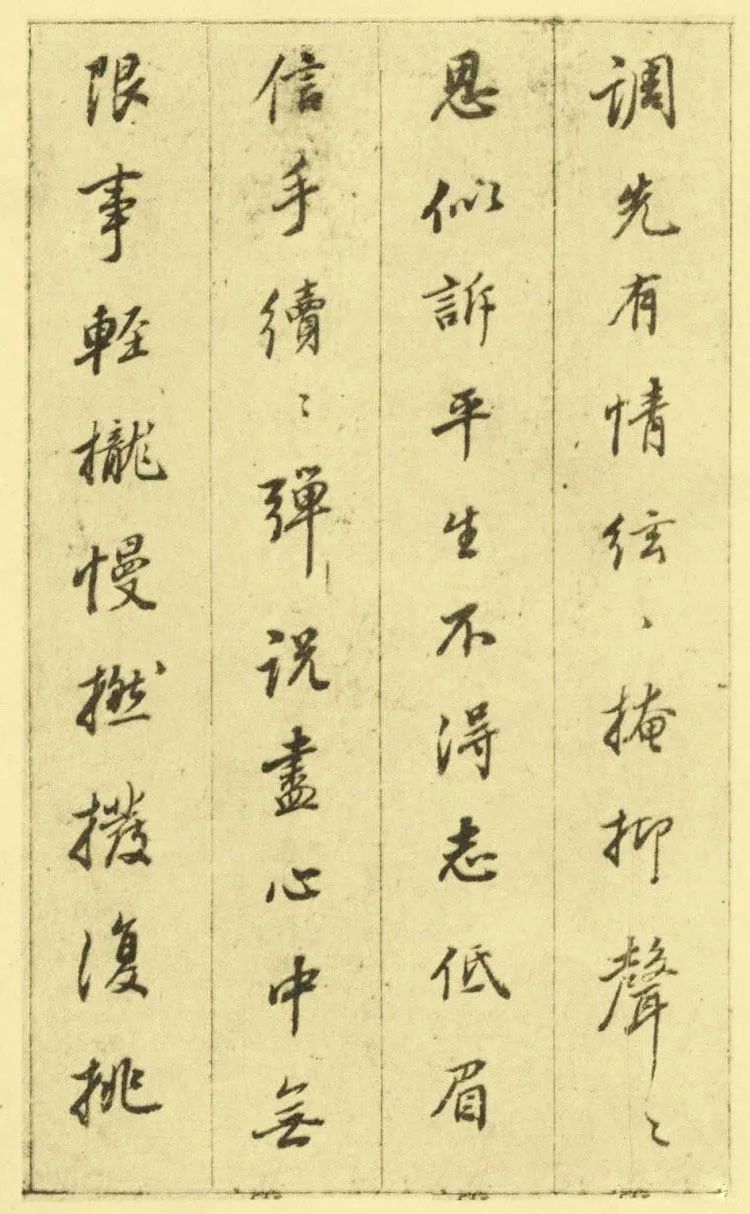 调先有情絃、掩抑聲〻
思似訴平生不得志低眉
信手續〻彈说盡心中無
限事輕攏慢撚撥復挑